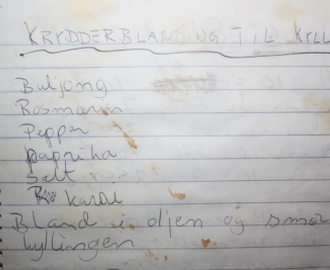 KRYDDERBLANDNG TIL KYLL
Buljong
Rosmarin
Pepper
paprika
Salt
Karri
Bland i oljen og smør
kyllingen